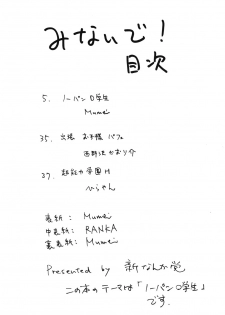 みないで!
目次
5. ノーパン〇学生
Mumei
35. 出張 お子様 パフェ
37. 超能力学園H
ひらやん
表紙: Mumei
中表紙: RANKA
裏表紙: Mumei
Presented by 新なんか党
この本のテーマは「ノーパン〇学生」
です.